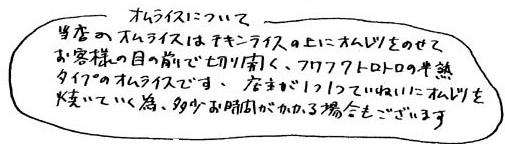 オムライスについて
当店のオムライスはチキンライスの上にオムレツをのせて
お客様の目の前で切り開く、フワフワトロトロの半熟
タイプのオムライスです。店主が1つ1つていねいにオムレツを
焼いていく為、多少お時間がかかる場合もございます